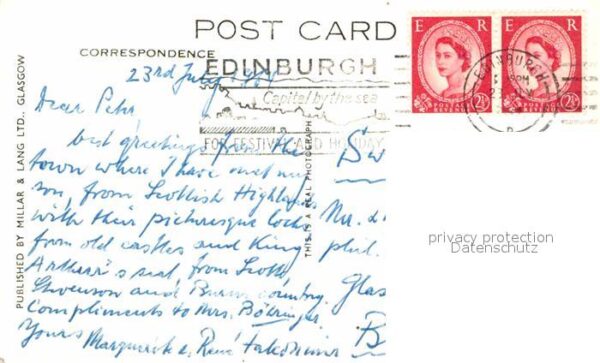 POST CARD
CORRESPONDENCE
EDINBURGH
Capital by the sea
FOR FESTIVAL AND HOLIDAY
E R
E R
2½
2½
EDINBURGH
PUBLISHED BY MILLAR & LANG LTD., GLASGOW
THIS IS A REAL PHOTOGRAPH
23rd July
Dear
best greetings from this
town where I have met my
son, from Scottish Highlands
with their picturesque lochs
from old castles and King
Arthur's seat, from Scott,
Stevenson and Burns country.
Compliments to Mrs. Böhringer
Yours Marguerite & René
Sw
phil.
Glas
B
privacy protection
Datenschutz